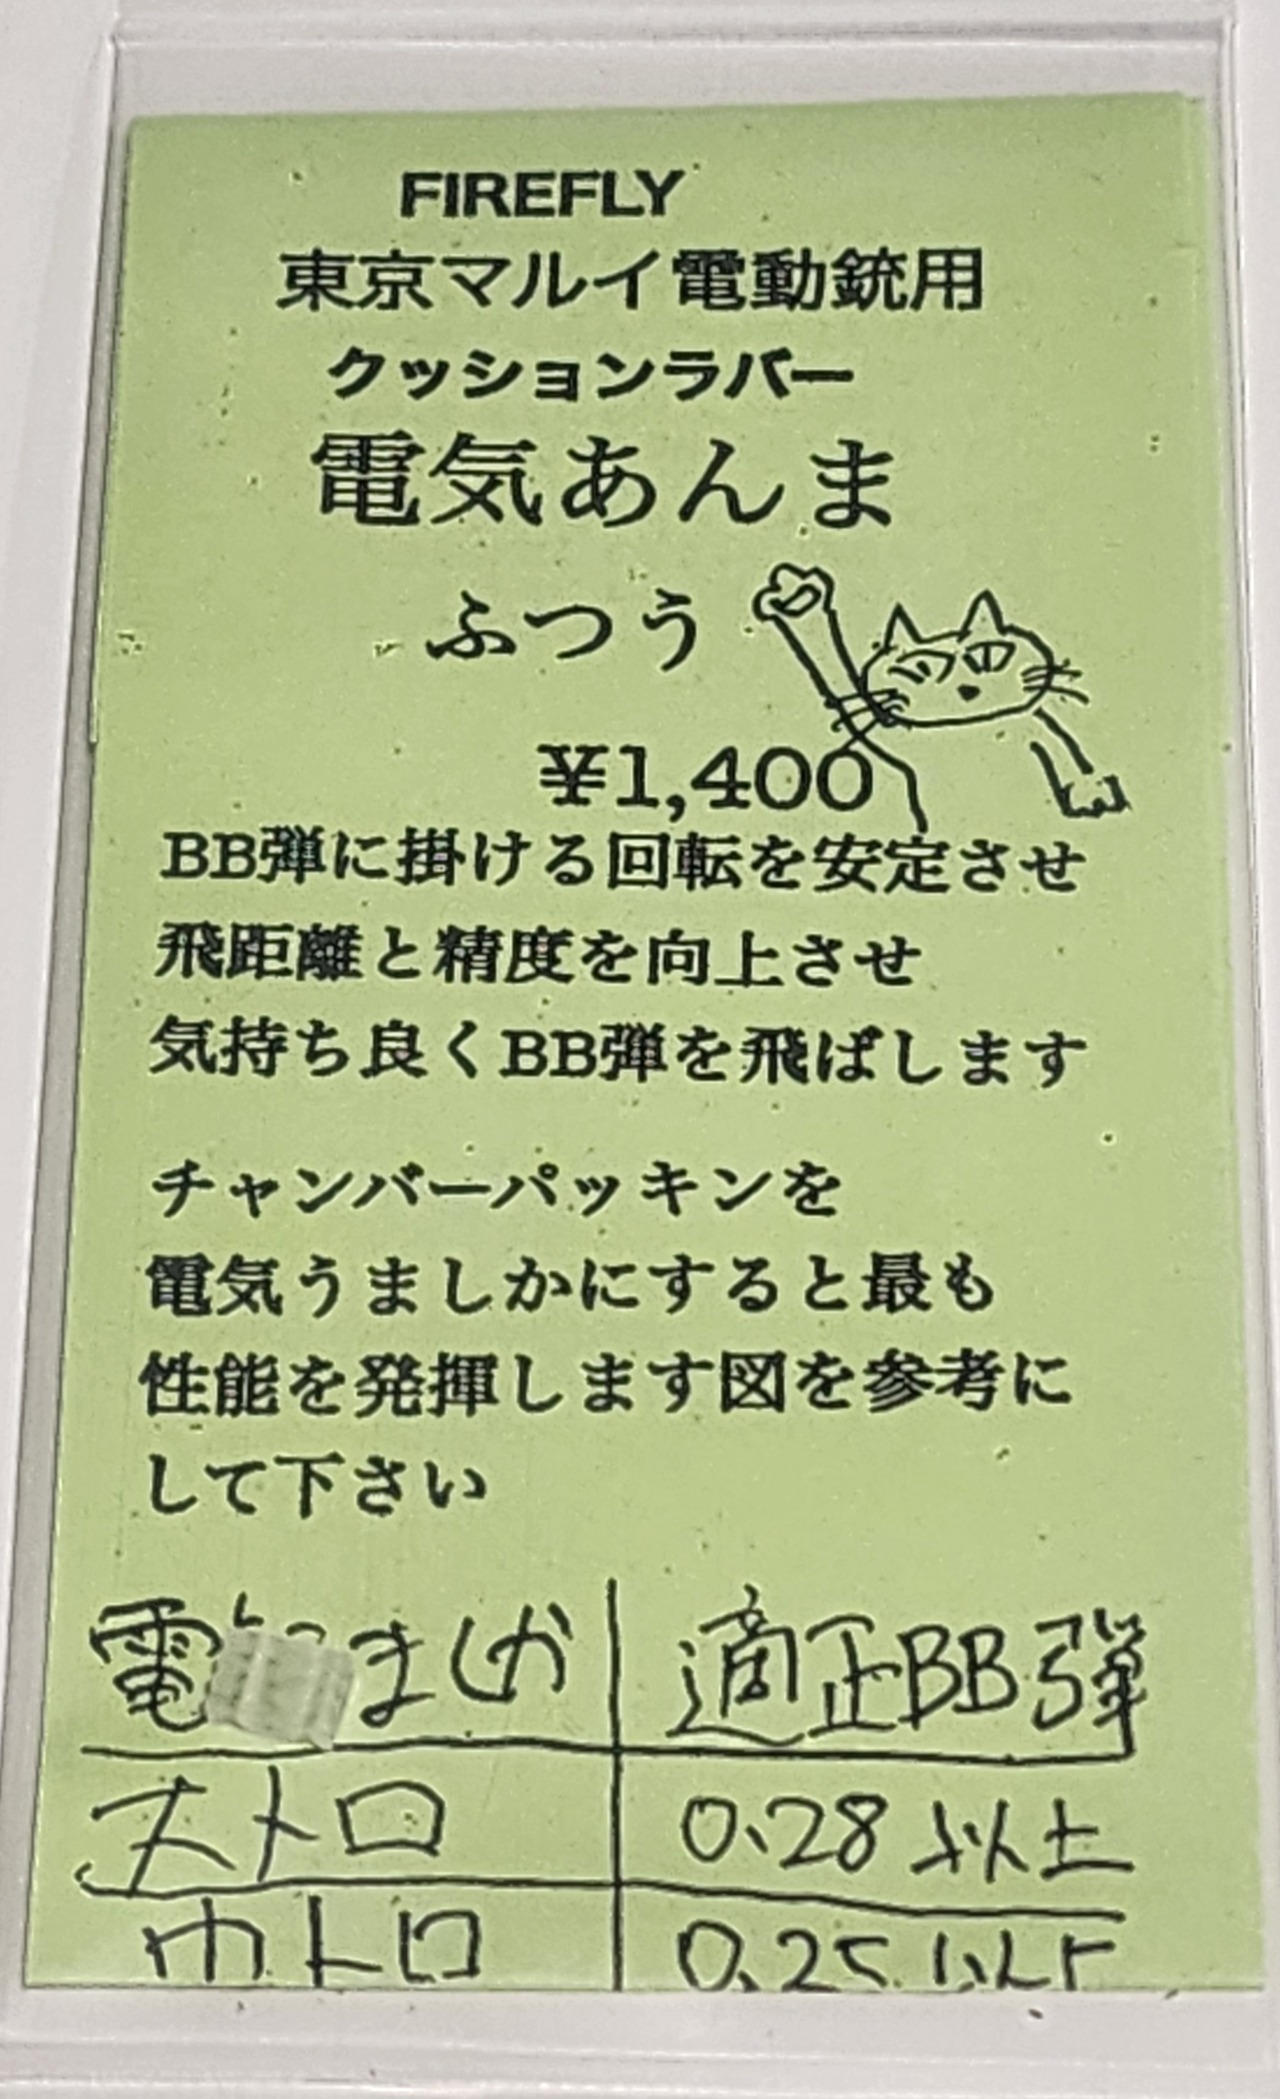 FIREFLY
東京マルイ電動銃用
クッションラバー
電気あんま
ふつう
¥1,400
BB弾に掛ける回転を安定させ
飛距離と精度を向上させ
気持ち良くBB弾を飛ばします
チャンバーパッキンを
電気うましかにすると最も
性能を発揮します図を参考に
して下さい
電 ましか 適正BB弾
大トロ 0.28以上
中トロ 0.25